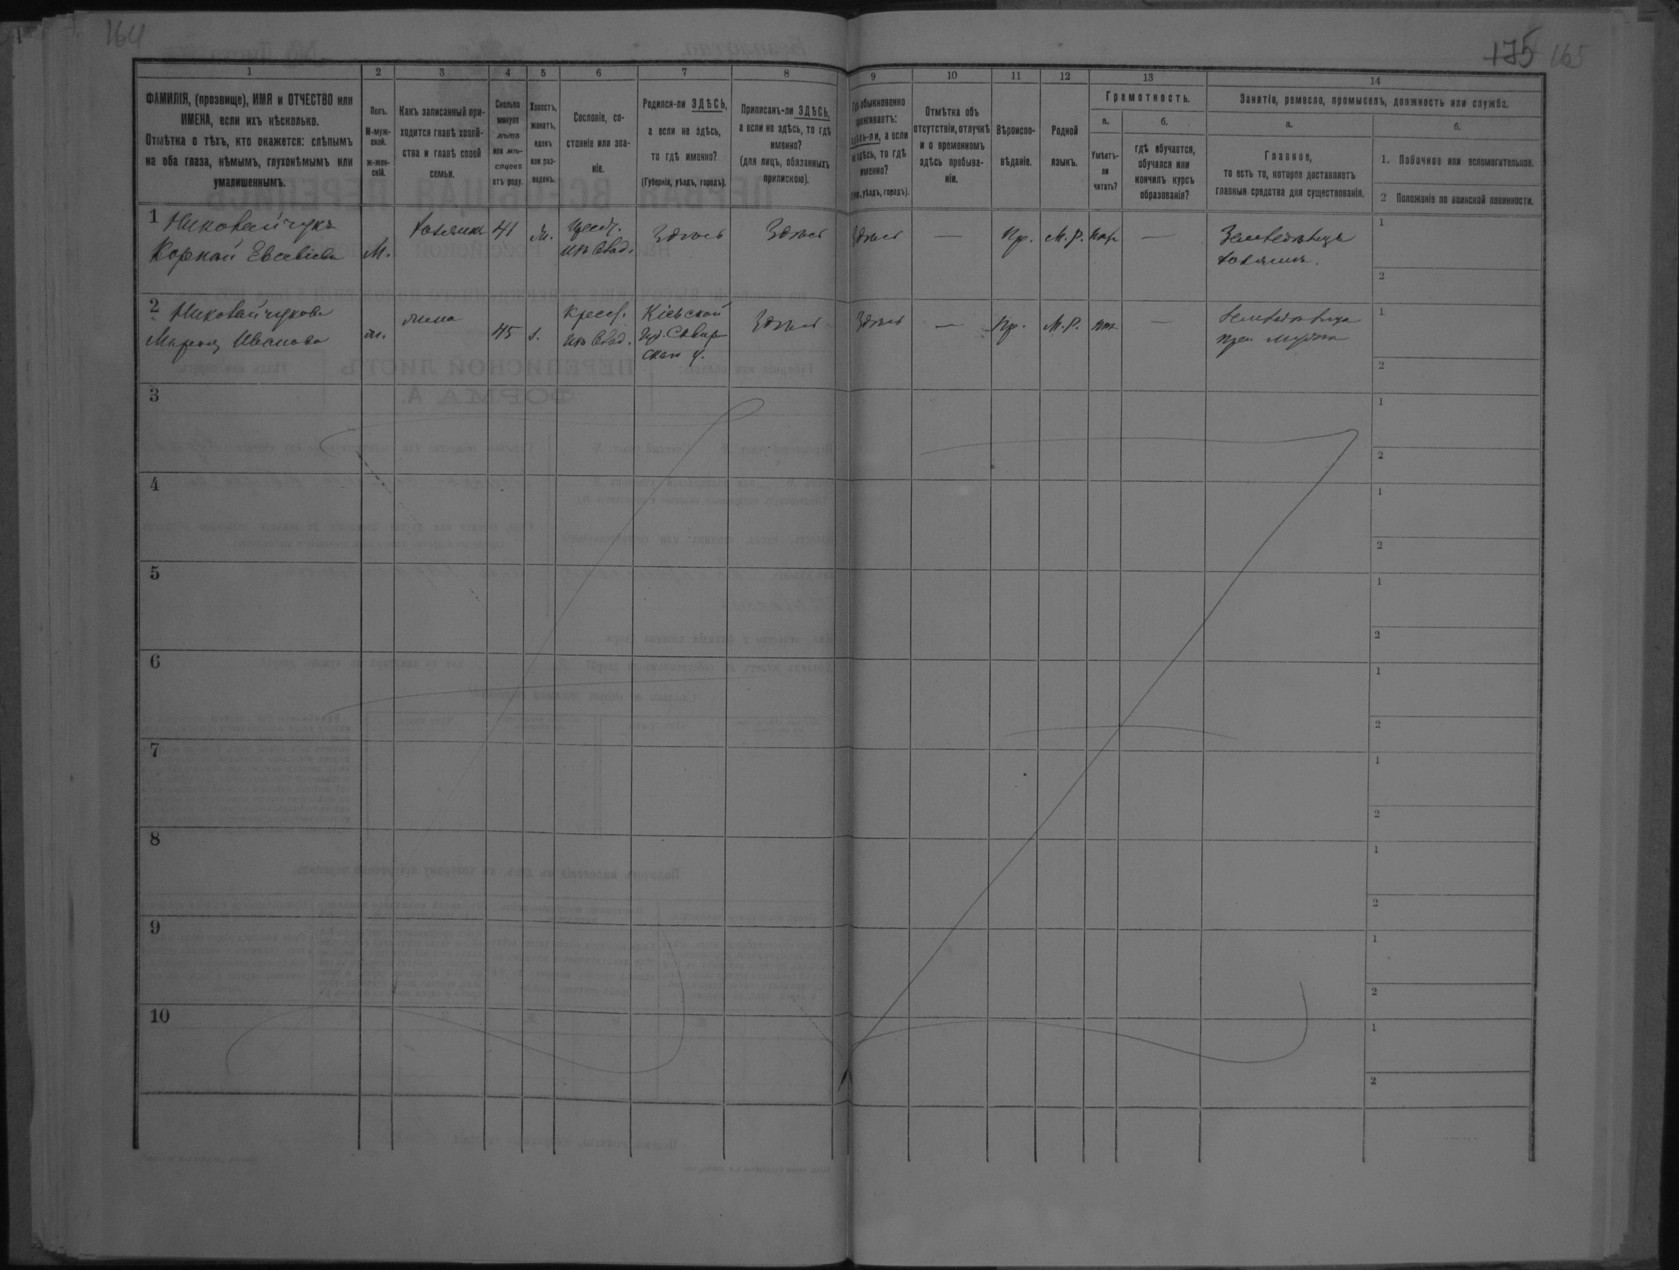 164
175 165
1
2
3
4
5
6
7
8
9
10
11
12
13
14
ФАМИЛІЯ, (прозвище), ИМЯ и ОТЧЕСТВО или
ИМЕНА, если ихъ нѣсколько.
Отмѣтка о тѣхъ, кто окажется: слѣпымъ
на оба глаза, нѣмымъ, глухонѣмымъ или
умалишеннымъ.
Полъ.
М-муж-
ской.
ж-жен-
скій.
Какъ записанный при-
ходится главѣ хозяй-
ства и главѣ своей
семьи.
Сколько
минуло
лѣтъ
или мѣ-
сяцевъ
отъ роду.
Холостъ,
женатъ,
вдовъ
или раз-
веденъ.
Сословіе, со-
стояніе или зва-
ніе.
Родился-ли ЗДѢСЬ,
а если не здѣсь,
то гдѣ именно?
(Губернія, уѣздъ, городъ).
Приписанъ-ли ЗДѢСЬ,
а если не здѣсь, то гдѣ
именно?
(для лицъ, обязанныхъ
припискою).
обыкновенно
проживаетъ:
здѣсь-ли, а если
не здѣсь, то гдѣ
именно?
уѣздъ, городъ).
Отмѣтка объ
отсутствіи, отлучкѣ
и о временномъ
здѣсь пребыва-
ніи.
Вѣроиспо-
вѣданіе.
Родной
языкъ.
Грамотность.
а.
б.
Умѣетъ-
ли
читать?
гдѣ обучается,
обучался или
кончилъ курсъ
образованія?
Занятіе, ремесло, промыселъ, должность или служба.
а.
б.
Главное,
то есть то, которое доставляетъ
главныя средства для существованія.
1. Побочное или вспомогательное.
2 Положеніе по воинской повинности.
1 Николайчукъ
Корній Евсевіевъ
М.
хозяинъ
41
Крест.
Здѣсь
Здѣсь
Здѣсь
—
Пр.
М.Р.
—
Земледѣлецъ
хозяинъ.
1
2
2 Николайчукова
Марія Иванова
ж.
жена
45
Крест.
Кіевской
губ. Сквир
ской у.
Здѣсь
Здѣсь
—
Пр.
М.Р.
—
1
2
3
1
2
4
1
2
5
1
2
6
1
2
7
1
2
8
1
2
9
1
2
10
1
2